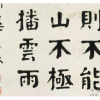 則不能
山不極
播雲雨